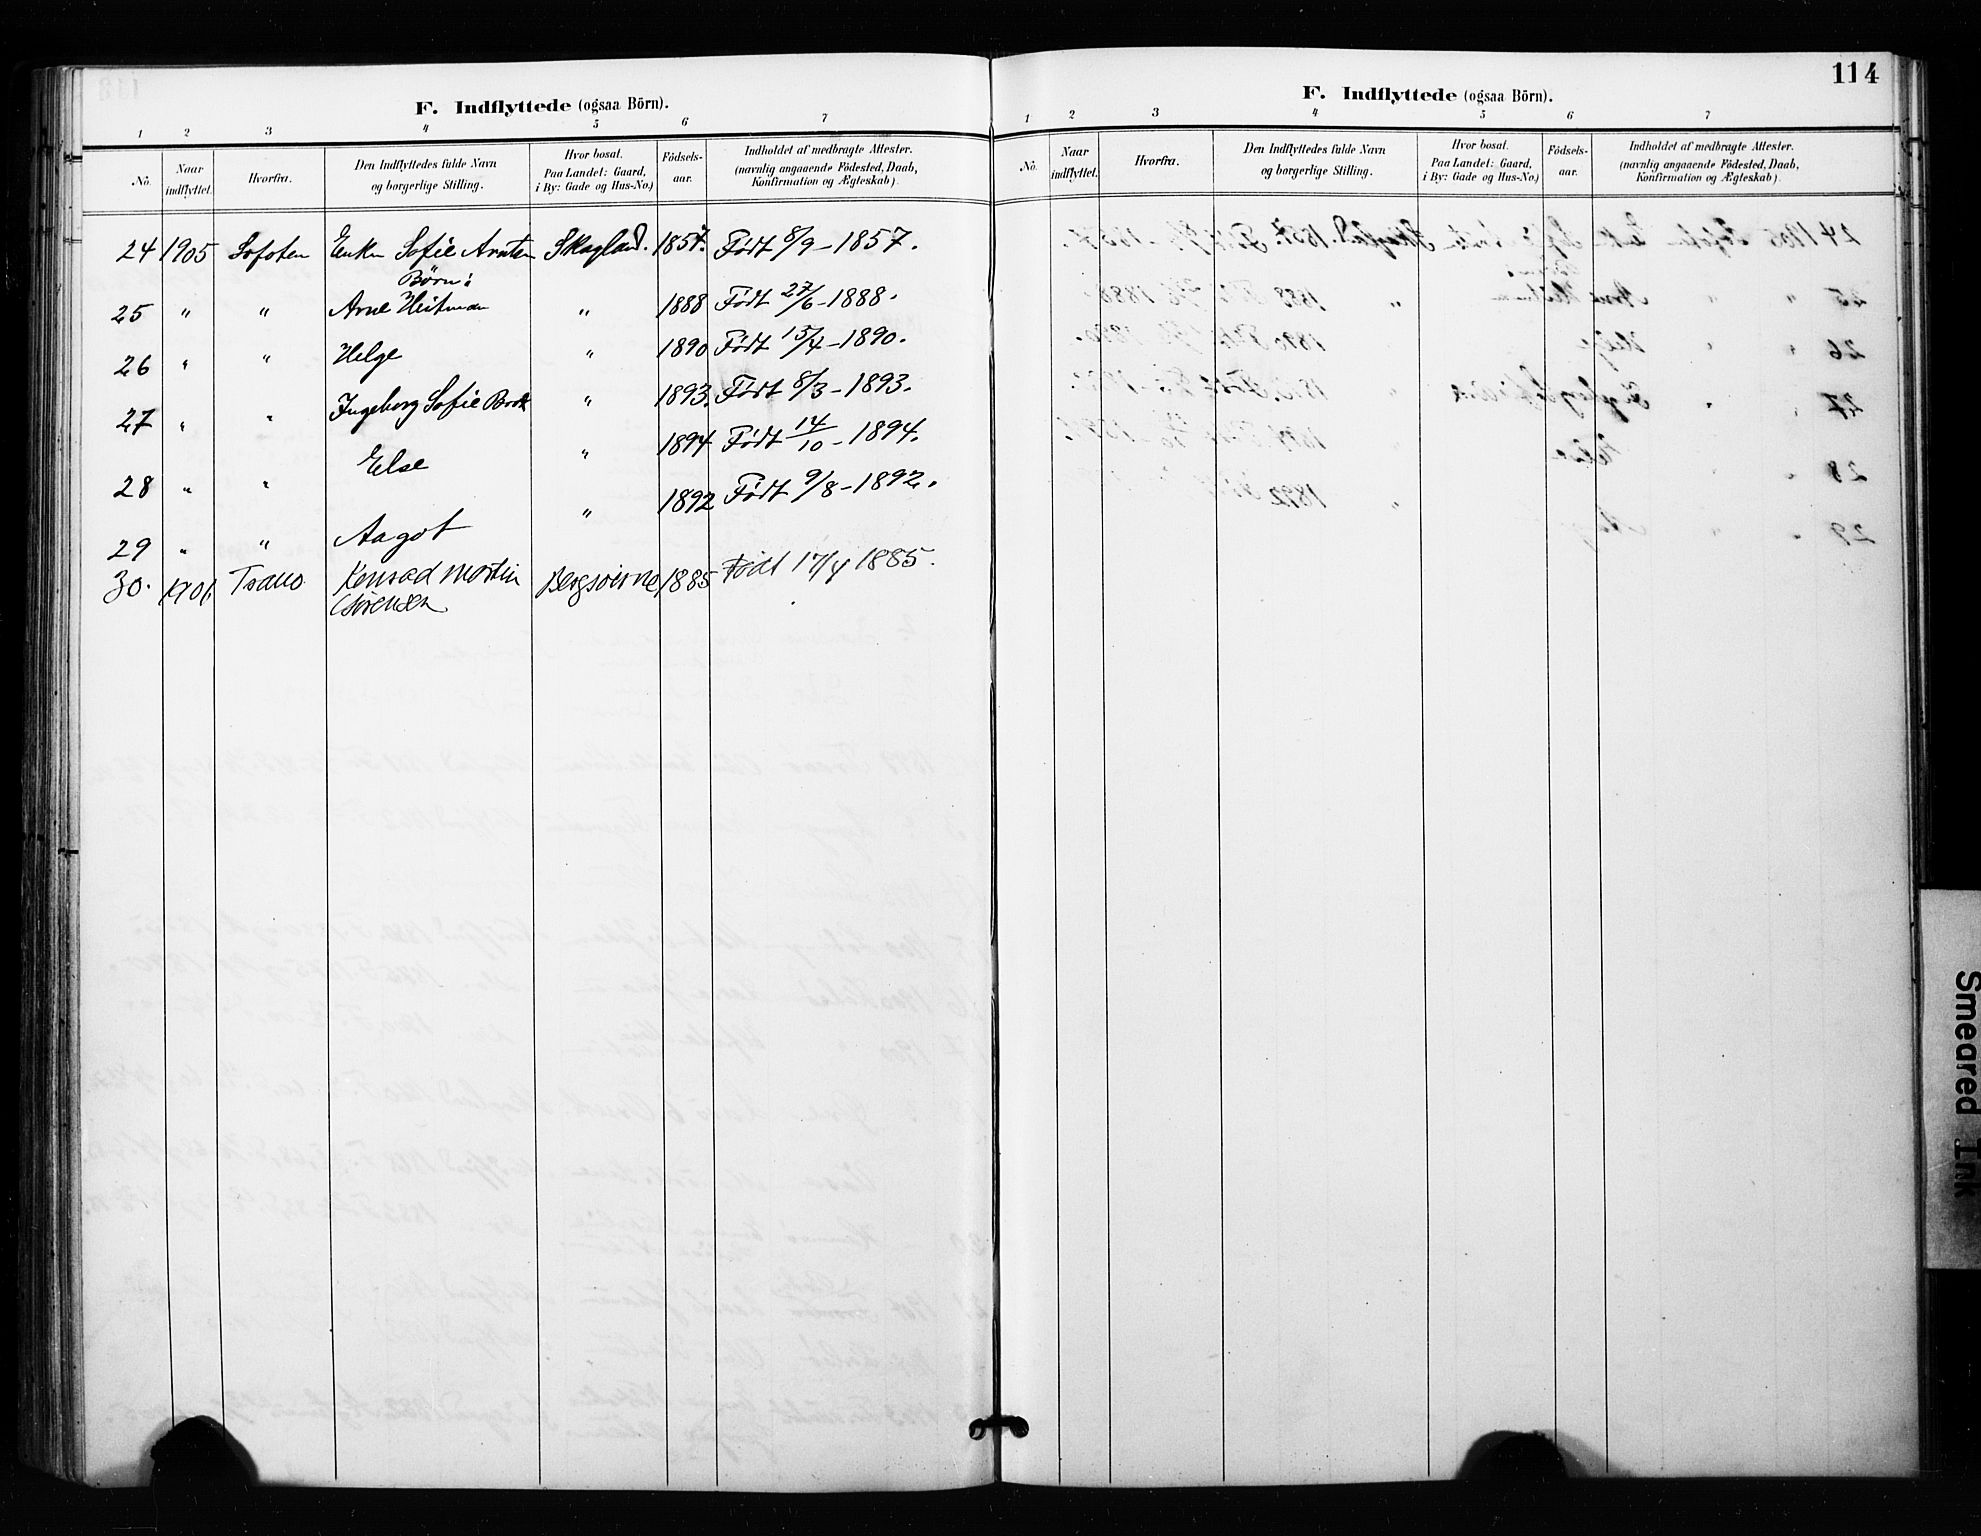 F. Indflyttede (ogsaa Börn).
1 2 3 4 5 6 7
No. Naar indflyttet. Hvorfra. Den Indflyttedes fulde Navn og borgerlige Stilling. Hvor bosat. Paa Landet: Gaard, i By: Gade og Hus-No.) Födsels-aar. Indholdet af medbragte Attester. (navnlig angaaende Födested, Daab, Konfirmation og Ægteskab).
24 1905 Lofoten Enken Sofie Arntzen Skagland. 1857. Født 8/9 - 1857.
Børn:
25 " " Arne Heitman " 1888 Født 27/6 - 1888.
26 " " Helge " 1890 Født 15/4 - 1890.
27 " " Ingeborg Sofie " 1893. Født 8/3 - 1893.
28 " " Else " 1894 Født 14/10 - 1894.
29 " " Aagot " 1892 Født 9/8 - 1892.
30. Tranø Konrad Martin Bergsøierne 1885 Født 17/4 1885.
Sørensen
114
F. Indflyttede (ogsaa Börn).
1 2 3 4 5 6 7
No. Naar indflyttet. Hvorfra. Den Indflyttedes fulde Navn og borgerlige Stilling. Hvor bosat. Paa Landet: Gaard, i By: Gade og Hus-No.) Födsels-aar. Indholdet af medbragte Attester. (navnlig angaaende Födested, Daab, Konfirmation og Ægteskab).
Smeared Ink